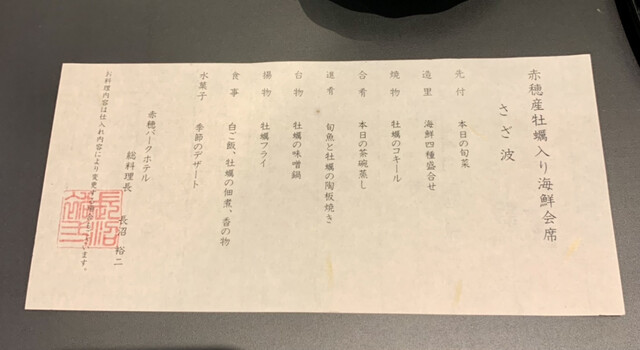 赤穂産牡蠣入り海鮮会席
さざ波
先付 本日の旬菜
造里 海鮮四種盛合せ
焼物 牡蠣のコキール
合肴 本日の茶碗蒸し
進肴 旬魚と牡蠣の陶板焼き
台物 牡蠣の味噌鍋
揚物 牡蠣フライ
食事 白ご飯、牡蠣の佃煮、香の物
水菓子 季節のデザート
赤穂パークホテル
総料理長 長沼 裕二
お料理内容は仕入れ内容により変更する場合がございます。